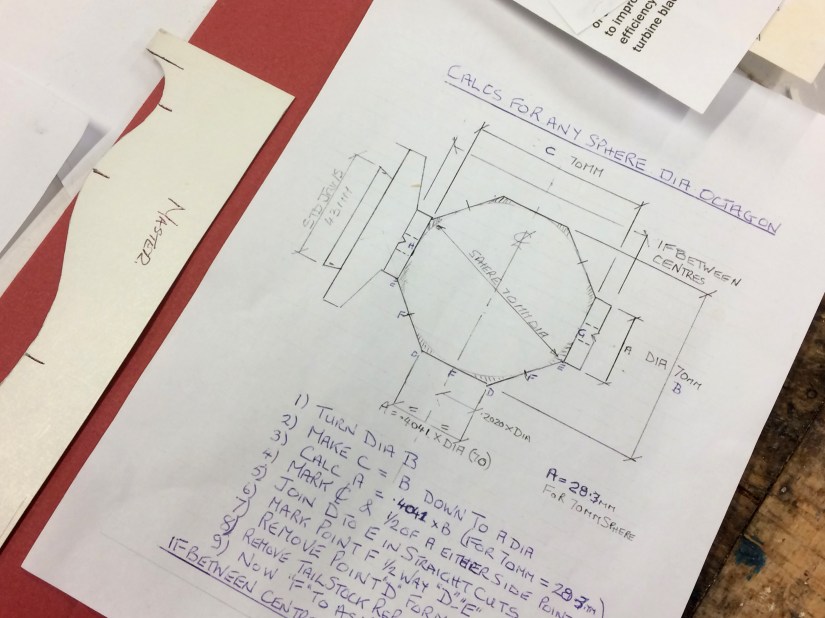 to impro
efficiency
turbine bla
MASTER
CALCS FOR ANY SPHERE DIA OCTAGON
C 70MM
STD JAWS
43MM
IF BETWEEN
CENTRES
SPHERE 70MM DIA
A
DIA 70mm
B
E
E
F
D
F
D
F
A = .4041 X DIA (70)
.2020 X DIA
A = 28.3mm
FOR 70MM SPHERE
1) TURN DIA B
2) MAKE C = B DOWN TO A DIA
3) CALC A = .4041 X B (FOR 70MM = 28.3mm)
4) MARK ℄ & 1/2 OF A EITHER SIDE POINT
5) JOIN D TO E IN STRAIGHT CUTS
6) MARK POINT F 1/2 WAY "D"-"E"
7) REMOVE POINT "D" FORM
8) REMOVE TAILSTOCK
9) NOW "F" TO
IF BETWEEN